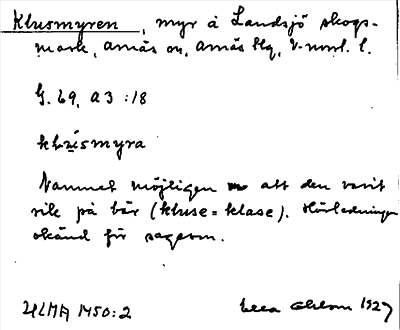 Klusmyren, myr å Landsjö skogs-
mark, Arnäs sn, Arnäs tlg, V-norrl. l.
G. 69, A3:18
klùsmyra
Namnet möjligen av att den varit
rik på bär (kluse = klase). Härledningen
okänd för sagesm.
ULMA 1450:2 1927